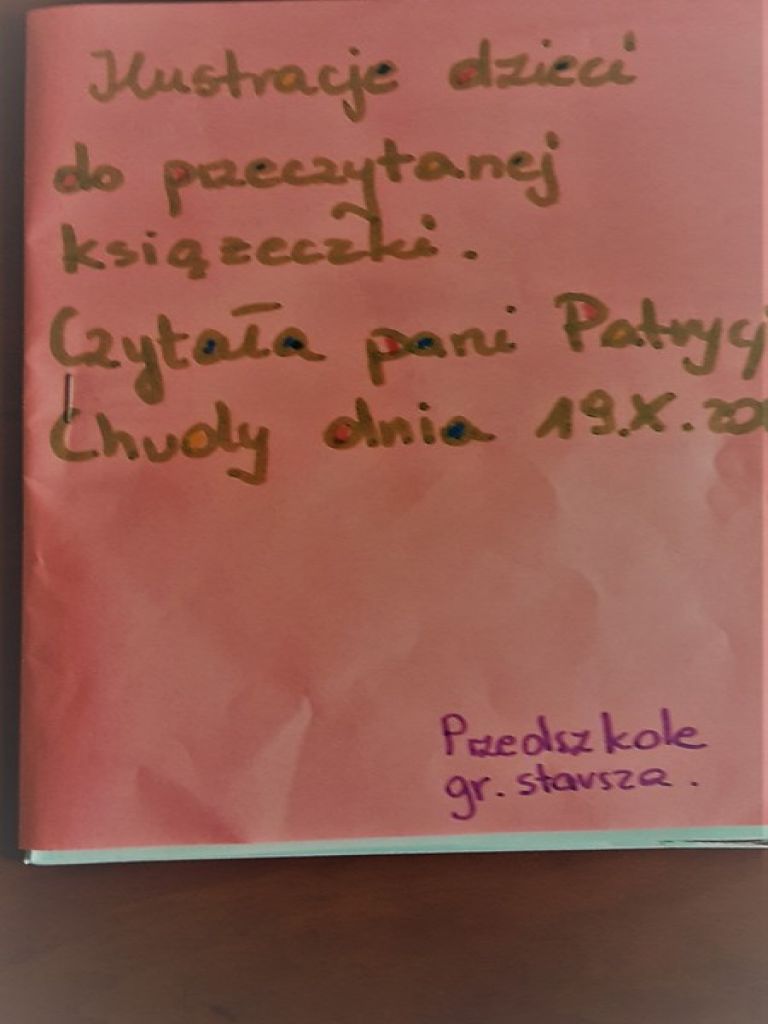 Ilustracje dzieci
do przeczytanej
książeczki.
Czytała pani Patrycj
Chudy dnia 19.X.20
Przedszkole
gr. starsza.